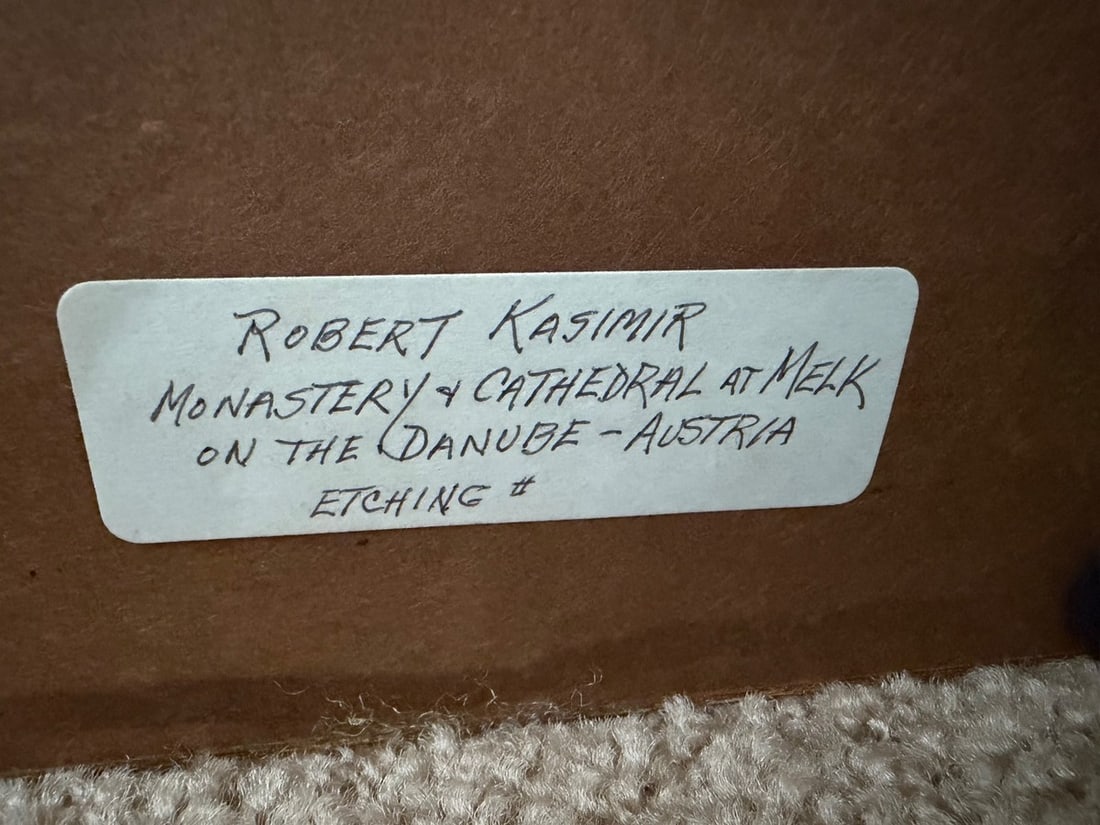 ROBERT KASIMIR
MONASTERY & CATHEDRAL AT MELK
ON THE DANUBE - AUSTRIA
ETCHING #